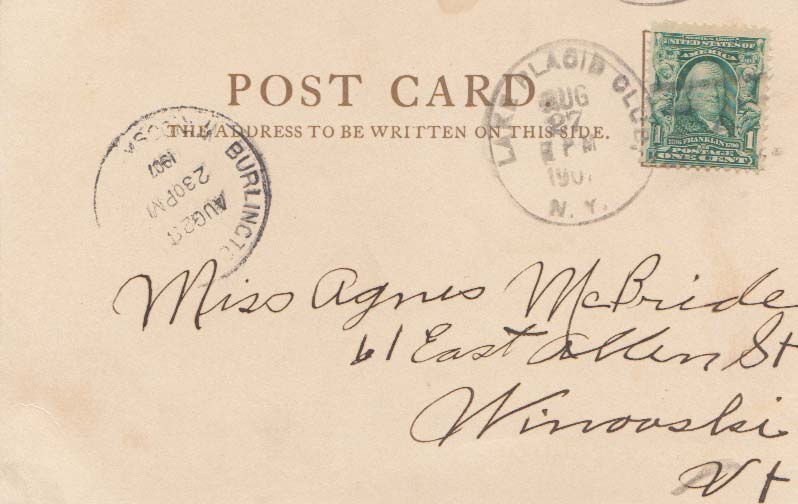 POST CARD.
THE ADDRESS TO BE WRITTEN ON THIS SIDE.
BURLINGTO
1907
230PM
AUG 28
LAKE PLACID CLUB
AUG
27
PM
1907
N. Y.
SERIES 1902
UNITED STATES OF
AMERICA
1 1
1706 FRANKLIN 1790
POSTAGE
ONE CENT
Miss Agnes McBride
61 East Allen St
Winooski
Vt